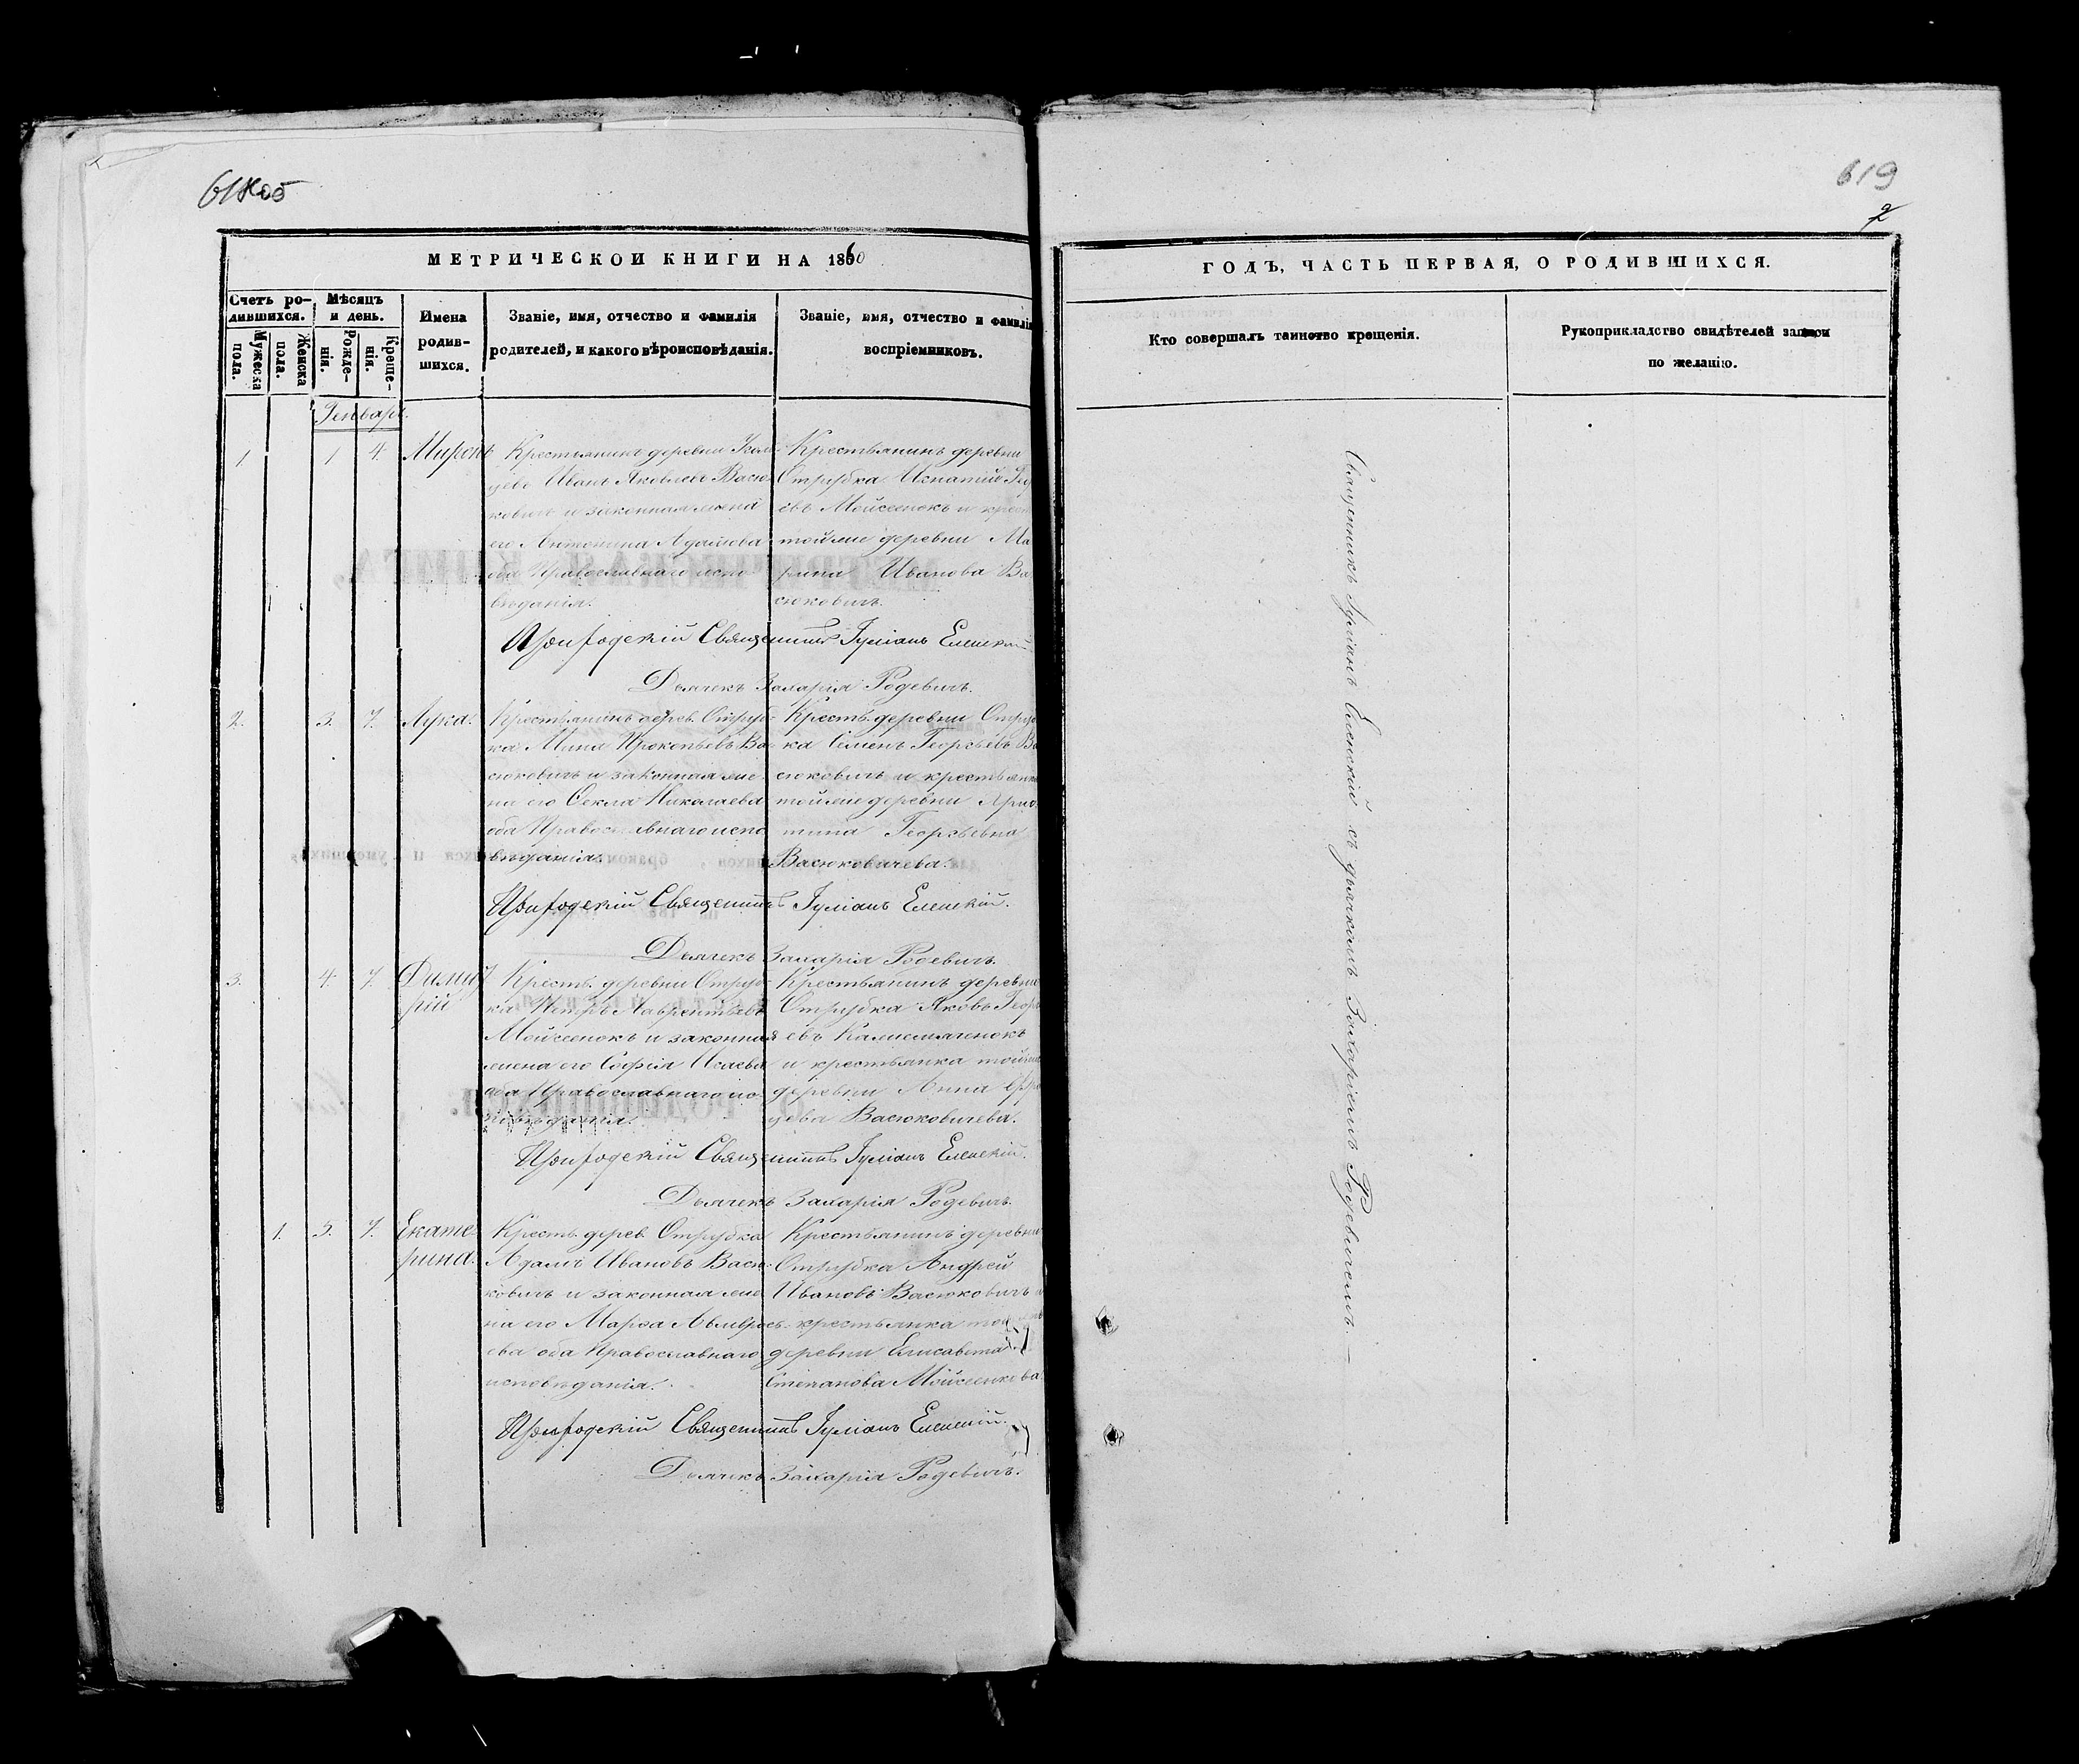 619
2
МЕТРИЧЕСКОЙ КНИГИ НА 1860
ГОДЪ, ЧАСТЬ ПЕРВАЯ, О РОДИВШИХСЯ.
Счетъ ро-
дившихся.
Мужеска
пола.
Женска
пола.
Мѣсяцъ
и день.
Рожде-
нія.
Креще-
нія.
Имена
родив-
шихся.
Званіе, имя, отчество и фамилія
родителей, и какого вѣроисповѣданія.
Званіе, имя, отчество и фамилія
воспріемниковъ.
Кто совершалъ таинство крещенія.
Рукоприкладство свидѣтелей записи
по желанію.
Генварь.
1. 1 4. Миронъ
Крестьянинъ деревни
Иванъ Яковлевъ Васю-
ковичъ и законная жена
его Антонина Адамова
оба Православнаго испо-
вѣданія.
Крестьянинъ деревни
Отрубка Игнатій
евъ Мойсеенокъ и
тойже деревни Ма
рина Иванова Ва
сюковичъ.
Приходскій Священникъ Іуліанъ Еленскій
Дьячекъ Захарія Родевичъ.
2. 3. 7. Лука.
Крестьянинъ дерев. Отруб-
ка Мина Прокопьевъ Ва-
сюковичъ и законная же-
на его Ѳекла Николаева
оба Православнаго испо
вѣданія.
Крестья. деревни Отруб
ка Семенъ Георгіевъ Ва
сюковичъ и крестьянка
тойже деревни
тина Георгьевна
Васюковичева.
Приходскій Священникъ Іуліанъ Еленскій.
Дьячекъ Захарія Родевичъ.
3. 4. 7. Димит
рій
Кресть. деревни Отруб-
ка Петръ Лаврентьевъ
Мойсеенокъ и законная
жена его Софія Исаева
оба Православнаго ис-
повѣданія.
Крестьянинъ деревни
Отрубка Яковъ Геор
евъ
и крестьянка тойже
деревни Анна
цева Васюковичева.
Приходскій Священникъ Іуліанъ Еленскій.
Дьячекъ Захарія Родевичъ.
1. 5. 7. Екате-
рина.
Кресть. дерев. Отрубка
Адамъ Ивановъ Васю-
ковичъ и законная же
на его Марѳа Амврось-
ева оба Православнаго
исповѣданія.
Крестьянинъ деревни
Отрубка Андрей
Ивановъ Васюковичъ и
крестьянка тойже
деревни Елисавета
Степанова Мойсеенкова.
Приходскій Священникъ Іуліанъ Еленскій.
Дьячекъ Захарія Родевичъ.
Священникъ Іуліанъ Еленскій съ дьячкомъ Захаріемъ Родевичемъ.